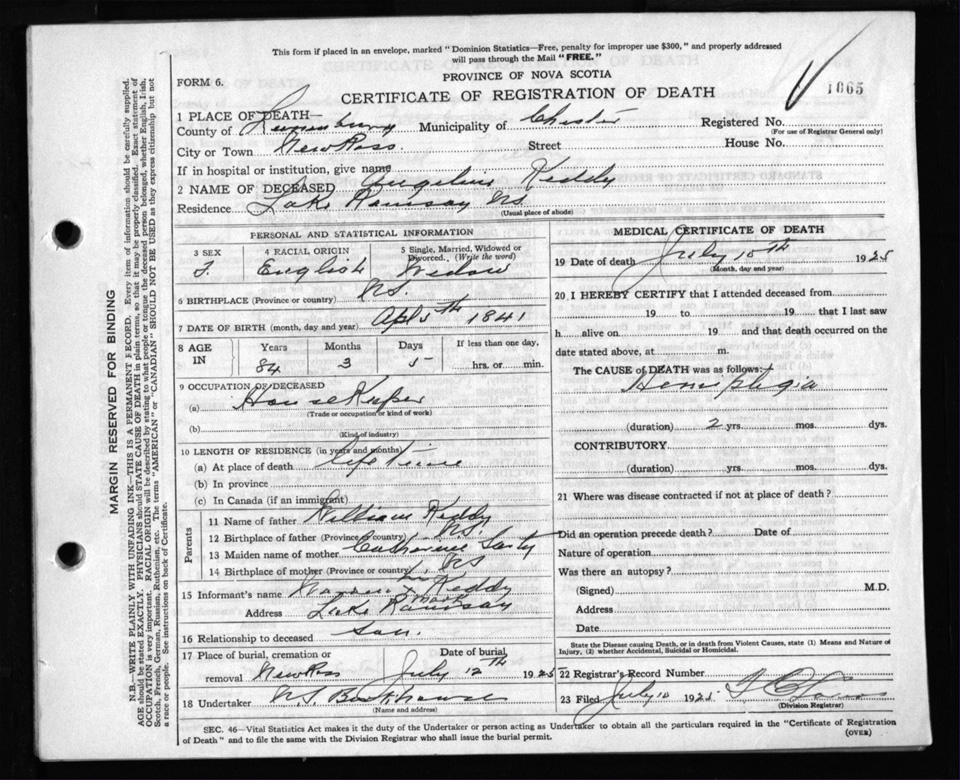 This form if placed in an envelope, marked "Dominion Statistics—Free, penalty for improper use $300," and properly addressed
will pass through the Mail "FREE."
FORM 6.
PROVINCE OF NOVA SCOTIA
1065
CERTIFICATE OF REGISTRATION OF DEATH
1 PLACE OF DEATH—
County of Lunenburg Municipality of Chester Registered No.
(For use of Registrar General only)
City or Town New Ross. Street House No.
If in hospital or institution, give name
2 NAME OF DECEASED Keddy
Residence Lake Ramsay NS.
(Usual place of abode)
PERSONAL AND STATISTICAL INFORMATION
3 SEX
F.
4 RACIAL ORIGIN
English
5 Single, Married, Widowed or
Divorced. (Write the word)
Widow
6 BIRTHPLACE (Province or country) NS.
7 DATE OF BIRTH (month, day and year) Apl 5th 1841
8 AGE
IN
Years Months Days If less than one day,
84 3 5 hrs. or min.
9 OCCUPATION OF DECEASED
(a) House Keeper
(Trade or occupation or kind of work)
(b)
(Kind of industry)
10 LENGTH OF RESIDENCE (in years and months)
(a) At place of death life time
(b) In province
(c) In Canada (if an immigrant)
Parents
11 Name of father William Keddy
12 Birthplace of father (Province or country) NS.
13 Maiden name of mother Catherine
14 Birthplace of mother (Province or country) NS
15 Informant's name Keddy
Address Lake Ramsay
16 Relationship to deceased son.
17 Place of burial, cremation or
removal New Ross
Date of burial
July 12th 1925
18 Undertaker
(Name and address)
MEDICAL CERTIFICATE OF DEATH
19 Date of death July 10th 1925
(Month, day and year)
20 I HEREBY CERTIFY that I attended deceased from
19 to 19 that I last saw
h alive on 19 and that death occurred on the
date stated above, at m.
The CAUSE of DEATH was as follows:
Hemiplegia
(duration) 2 yrs. mos. dys.
CONTRIBUTORY
(duration) yrs. mos. dys.
21 Where was disease contracted if not at place of death?
Did an operation precede death? Date of
Nature of operation
Was there an autopsy?
(Signed) M.D.
Address
Date
State the Disease causing Death, or in death from Violent Causes, state (1) Means and Nature of
Injury, (2) whether Accidental, Suicidal or Homicidal.
22 Registrar's Record Number
23 Filed July 10 1925
(Division Registrar)
SEC. 46—Vital Statistics Act makes it the duty of the Undertaker or person acting as Undertaker to obtain all the particulars required in the "Certificate of Registration
of Death" and to file the same with the Division Registrar who shall issue the burial permit.
(OVER)
MARGIN RESERVED FOR BINDING
N.B.—WRITE PLAINLY WITH UNFADING INK—THIS IS A PERMANENT RECORD. Every item of information should be carefully supplied.
AGE should be stated EXACTLY. PHYSICIANS should STATE CAUSE OF DEATH in plain terms, so that it may be properly classified. Exact statement of
OCCUPATION is very important. RACIAL ORIGIN will be described by stating to what people or tongue the deceased person belonged, whether English, Irish,
Scotch, French, German, Russian, Ruthenian, etc. The terms "AMERICAN" or "CANADIAN" SHOULD NOT BE USED as they express citizenship but not
a race or people. See instructions on back of Certificate.